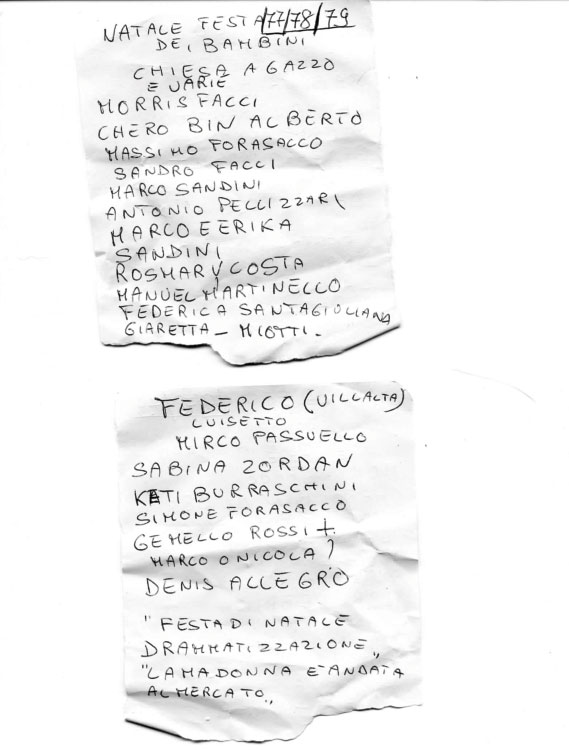 NATALE FESTA /77/78/79
DEI BAMBINI
CHIESA A GAZZO
E VARIE
MORRIS FACCI
CHERO BIN ALBERTO
MASSIMO FORASACCO
SANDRO FACCI
MARCO SANDINI
ANTONIO PELLIZZARI
MARCO E ERIKA
SANDINI
ROSMARY COSTA
MANUEL MARTINELLO
FEDERICA SANTAGIULIANA
GIARETTA - MIOTTI.
FEDERICO (VILLALTA)
LUISETTO
MIRCO PASSUELLO
SABINA ZORDAN
KETI BURRASCHINI
SIMONE FORASACCO
GEMELLO ROSSI +
MARCO O NICOLA?
DENIS ALLEGRO
"FESTA DI NATALE
DRAMMATIZZAZIONE"
"LA MADONNA E' ANDATA
AL MERCATO"